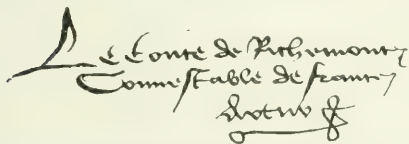 Le Conte de Richemont
Connestable de france
Artur